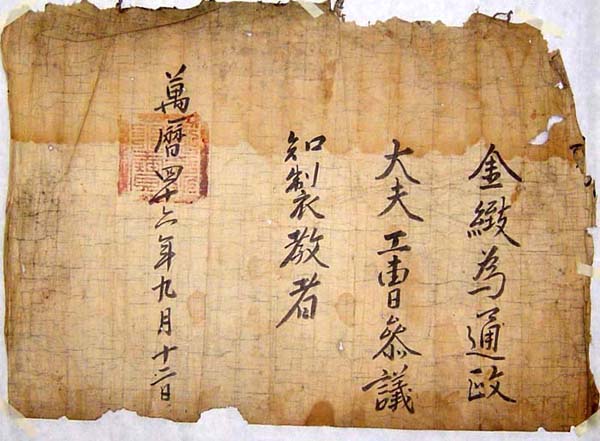 金緻為通政
大夫工曺叅議
知製教者
萬曆四十六年九月十二日